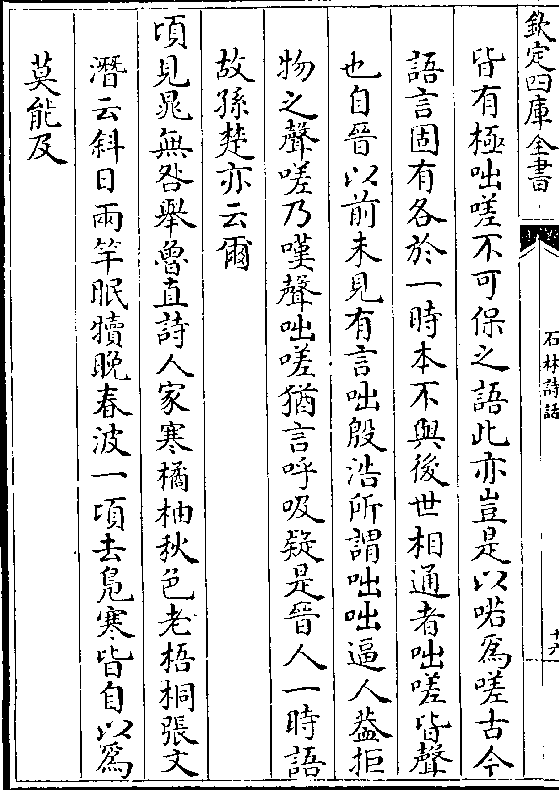 欽定四庫全書
石林詩話
十六
皆有極咄嗟不可保之語此亦豈是以喏為嗟古今
語言固有各於一時本不與後世相通者咄嗟皆聲
也自晉以前未見有言咄殷浩所謂咄咄逼人葢拒
物之聲嗟乃嘆聲咄嗟猶言呼吸疑是晉人一時語
故孫楚亦云爾
頃見晁無咎舉魯直詩人家寒橘柚秋色老梧桐張文
潛云斜日兩竿眠犢晚春波一頃去鳬寒皆自以為
莫能及